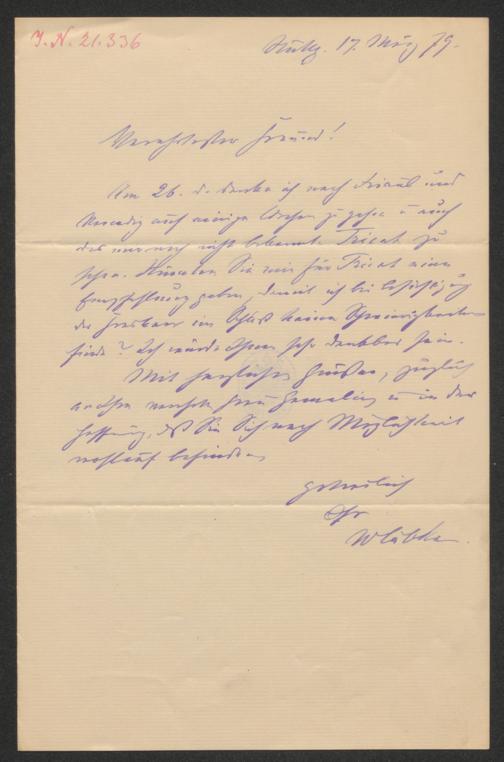 I. N. 21.336
Stuttg. 17. März 79.
Verehrtester Freund!
Am 26. d. denke ich nach Friaul und
Venedig auf einige Wochen zu gehen u. auch
das mir noch nicht bekannte Trient zu
sehen. Könnten Sie mir für Trient eine
Empfehlung geben, damit ich bei Besichtigung
der Fresken im Schloß keine Schwierigkeiten
finde? Ich würde Ihnen sehr dankbar sein.
Mit herzlichen Grüßen, zugleich
an Ihre verehrte Frau Gemalin u. in der
Hoffnung, daß Sie Sich nach Möglichkeit
wohlauf befinden,
getreulich
Ihr
WLübke.